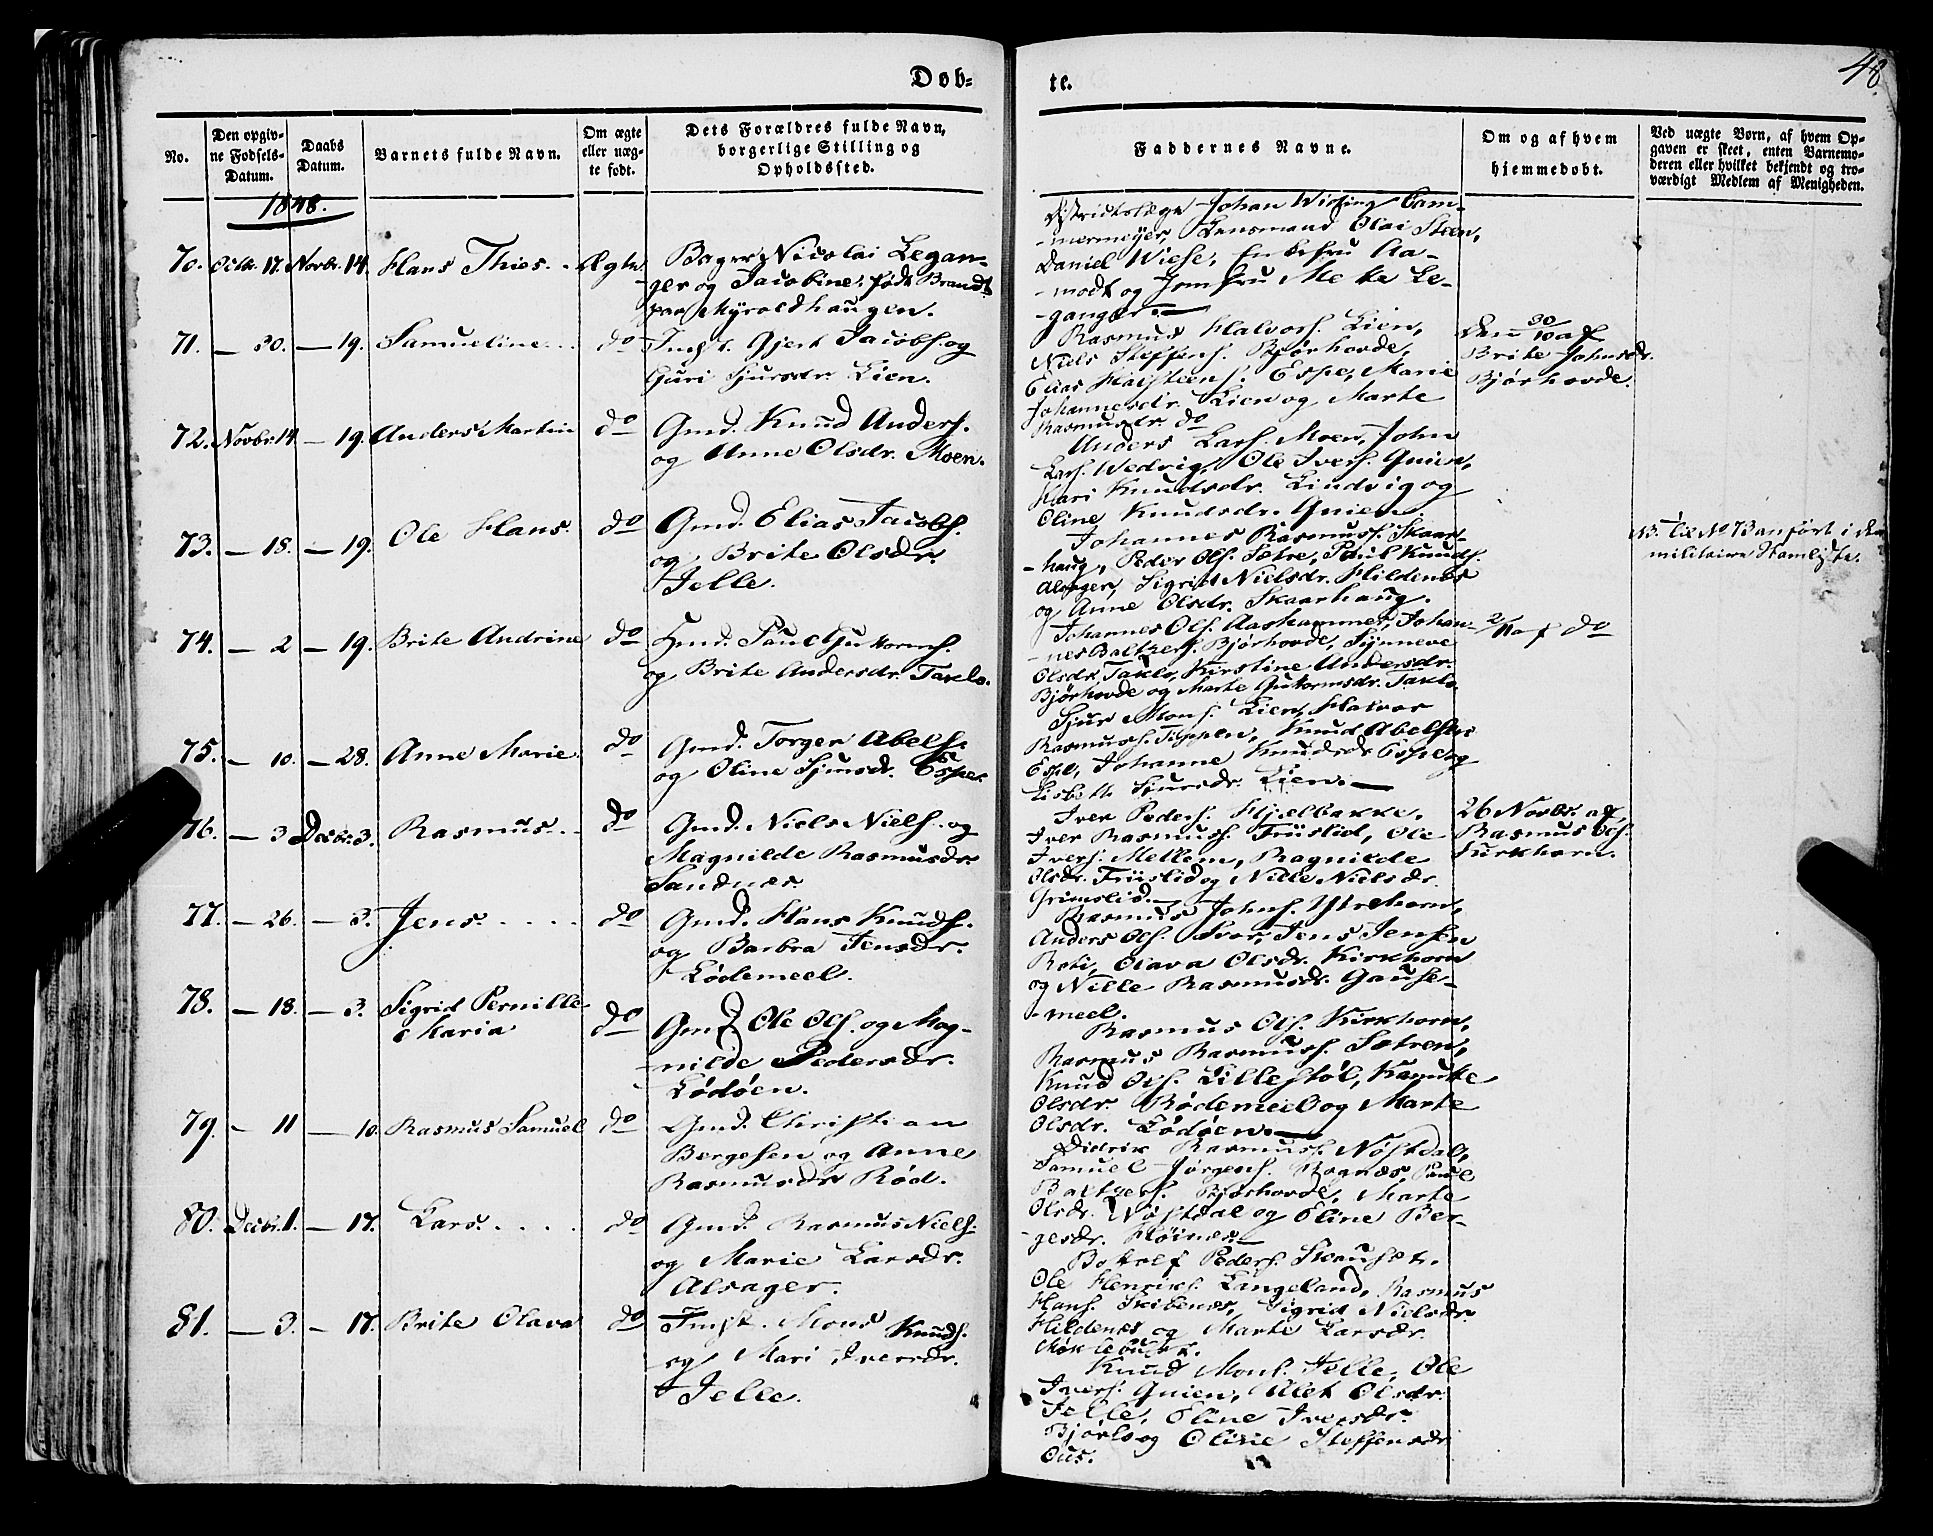 Døb-
te.
48.
No.
Den opgiv-
ne Fødsels-
Datum.
Daabs
Datum.
Barnets fulde Navn.
Om ægte
eller uæg-
te født.
Dets Forældres fulde Navn,
borgerlige Stilling og
Opholdssted.
Faddernes Navne.
Om og af hvem
hjemmedøbt.
Ved uægte Børn, af hvem Op-
gaven er skeet, enten Barnemo-
deren eller hvilket bekjendt og tro-
værdigt Medlem af Menigheden.
1848.
70. Octbr. 17. Novbr. 14. Hans Thies. Ægte
Bager Nicolai Legan-
ger og Jacobine, født Brandt
paa Myroldhaugen.
Districtslæge Johan Wissing Cam-
mermeyer, Lensmand Olai Steen,
Daniel Wiese, Enkefru Aa-
modt og Jomfru Mette Le-
ganger.
71. — 30. — 19. Samueline do
Indst. Gjert Jacobs. og
Guri Sjursdr. Lien.
Rasmus Halvors. Lien,
Niels Steffens. Bjørhovde,
Elias Halsteens. Espe, Marie
Johannesdr. Lien og Marte
Rasmusdr. do
Den 30/10 af
Brite Johnsdr.
Bjørhovde.
72. Novbr. 14 — 19. Anders Martin do
Gmd. Knud Anders.
og Anne Olsdr. Moen.
Anders Lars. Moen, John
Lars. Wedvig, Ole Ivers. Quien,
Kari Knudsdr. Lindvig og
Oline Knudsdr. Quien.
73. — 18. — 19. Ole Hans. do
Gmd. Elias Jacobs.
og Brite Olsdr.
Jelle.
Johannes Rasmuss. Skaar-
haug, Peder Ols. Sætre, Paul Knuds.
Alsager, Sigrid Nielsdr. Hildenes
og Anne Olsdr. Skaarhaug.
NB. til No 73 anført i den
militaire Stamliste.
74. — 2 — 19. Brite Andrine do
Gmd. Paul Guttorms.
og Brite Andersdr. Taklo.
Johannes Ols. Aashammer, Johan-
nes Baltzers. Bjørhovde, Synneve
Olsdr. Taklo, Kirstine Andersdr.
Bjørhovde og Marte Guttormsdr. Taklo.
2/11 af do
75. — 10. — 28. Anne Marie do
Gmd. Torger Abels.
og Oline Sjursdr. Espe.
Sjur Mons. Lien, Halvor
Rasmuss. Tippen, Knud Abels.
Espe, Johanne Knudsdr. Espe og
Lisbeth Sjursdr. Lien.
76. — 3 Decbr. 3. Rasmus do
Gmd. Niels Niels. og
Magnilde Rasmusdr.
Sandnes.
Iver Peders. Hjelbakke,
Iver Rasmuss. Friislid, Ole
Ivers. Mellem, Ragnilde
Olsdr. Friislid og Nille Nielsdr.
Grimslid.
26 Novbr. af
Rasmus Ols.
Kirkhorn.
77. — 26. — 3. Jens. do
Gmd. Hans Knuds.
og Barbra Jensdr.
Lødemeel.
Rasmus Johns. Ytrehorn,
Anders Ols. Svor, Jens Jensen
Roti, Olava Olsdr. Kirkhorn
og Nille Rasmusdr. Gause-
meel.
78. — 18. — 3. Sigrid Pernille
Maria do
Gmd. Ole Ols. og Mag-
nilde Pedersdr.
Lødøen.
Rasmus Ols. Kirkhorn,
Rasmus Rasmuss. Sætren,
Knud Ols. Lillestøl, Kanutte
Olsdr. Rødemeel og Marte
Olsdr. Lødøen.
79. — 11 — 10. Rasmus Samuel do
Gmd. Christian
Bergesen og Anne
Rasmusdr. Rød.
Didrik Rasmuss. Nøstdal,
Samuel Jørgens. Rognæs, Paul
Baltzers. Bjørhovde, Marte
Olsdr. Nøstdal og Eline Ber-
gesdr. Høinæs.
80. Decbr. 1. — 17. Lars. do
Gmd. Rasmus Niels.
og Marie Larsdr.
Alsager.
Botolf Peders. Skauset,
Ole Henriks. Langeland, Rasmus
Hans. Skibenæs, Sigrid Nielsdr.
Hildenæs og Marte Larsdr.
Møklebust.
81. — 3. — 17. Brite Olava do
Indst. Mons Knuds.
og Mari Iversdr.
Jelle.
Knud Mons. Jelle, Ole
Ivers. Quien, Alet Olsdr.
Jelle, Eline Iversdr.
Bjørlo og Oline Steffensdr.
Ous.